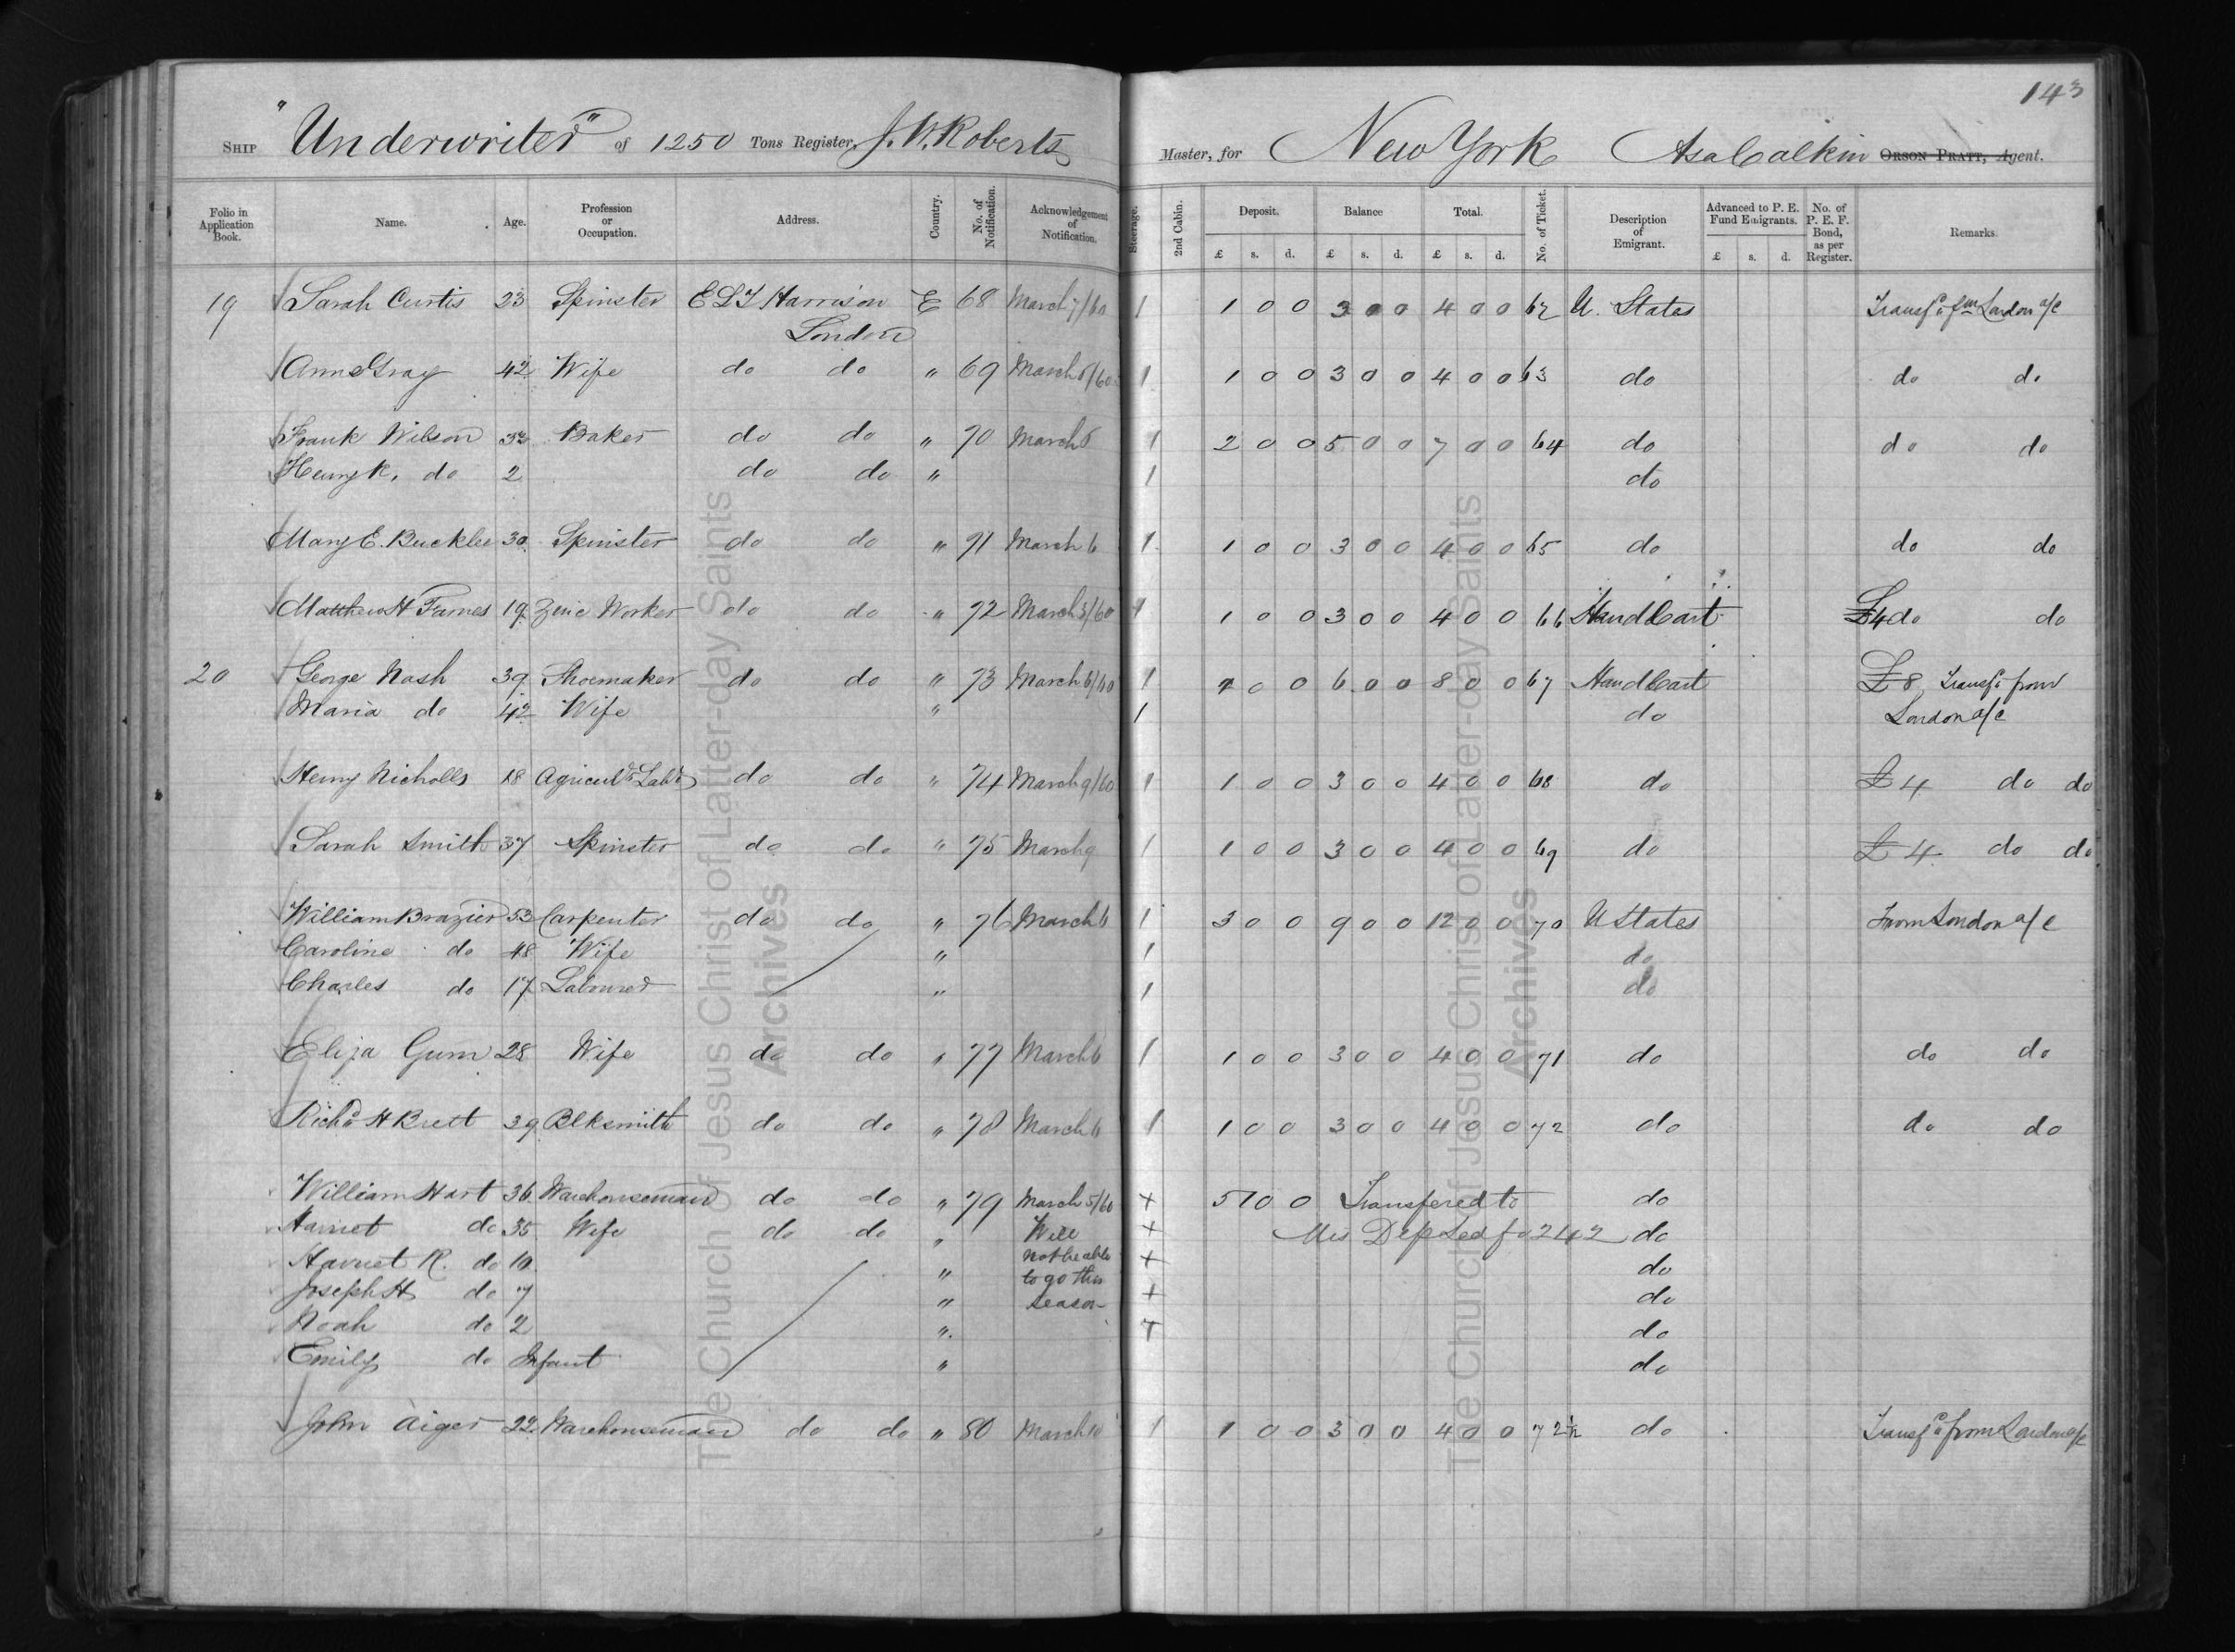 143
Ship "Underwriter" of 1250 Tons Register, J. W. Roberts Master, for New York Asa Calkin Orson Pratt, Agent.
Folio in Application Book. Name. Age. Profession or Occupation. Address. Country. No. of Notification. Acknowledgement of Notification. Steerage. 2nd Cabin. Deposit. Balance Total. No. of Ticket. Description of Emigrant. Advanced to P. E. Fund Emigrants. No. of P. E. F. Bond, as per Register. Remarks.
£ s. d. £ s. d. £ s. d. £ s. d.
19 Sarah Curtis 23 Spinster E L T Harrison E 68 March 7/60 1 1 0 0 3 0 0 4 0 0 62 U. States Transfd fm London a/c
London
Ann Gray 42 Wife do do " 69 March 6/60 1 1 0 0 3 0 0 4 0 0 63 do do do
Frank Wilson 32 Baker do do " 70 March 6 1 2 0 0 5 0 0 7 0 0 64 do do do
Henry K. do 2 do do " 1 do
Mary E. Bucklee 30 Spinster do do " 71 March 6 1 1 0 0 3 0 0 4 0 0 65 do do do
Matthew H Fames 19 Zinc Worker do do " 72 March 3/60 1 1 0 0 3 0 0 4 0 0 66 Hand Cart £4 do do
20 George Nash 39 Shoemaker do do " 73 March 6/60 1 2 0 0 6 0 0 8 0 0 67 Hand Cart £8 Transfd from
Maria do 42 Wife " 1 do London a/c
Henry Nicholls 18 Agricult Labr do do " 74 March 9/60 1 1 0 0 3 0 0 4 0 0 68 do £4 do do
Sarah Smith 37 Spinster do do " 75 March 9 1 1 0 0 3 0 0 4 0 0 69 do £4 do do
William Brazier 53 Carpenter do do " 76 March 6 1 3 0 0 9 0 0 12 0 0 70 U States From London a/c
Caroline do 48 Wife " 1 do
Charles do 17 Labourer " 1 do
Eliza Gum 28 Wife do do " 77 March 6 1 1 0 0 3 0 0 4 0 0 71 do do do
Richd H Brett 39 Blksmith do do " 78 March 6 1 1 0 0 3 0 0 4 0 0 72 do do do
William Hart 36 Warehouseman do do " 79 March 5/60 + 5 10 0 Transfered to do
Harriet do 35 Wife do do " Will + Mis Dep Led fo 242 do
Harriet R. do 10 " not be able + do
Joseph H do 7 " to go this + do
Noah do 2 " season + do
Emily do Infant " do
John Aiger 22 Warehouseman do do " 80 March 10 1 1 0 0 3 0 0 4 0 0 72½ do Transfd from London a/c
The Church of Jesus Christ of Latter-day Saints
Archives
The Church of Jesus Christ of Latter-day Saints
Archives